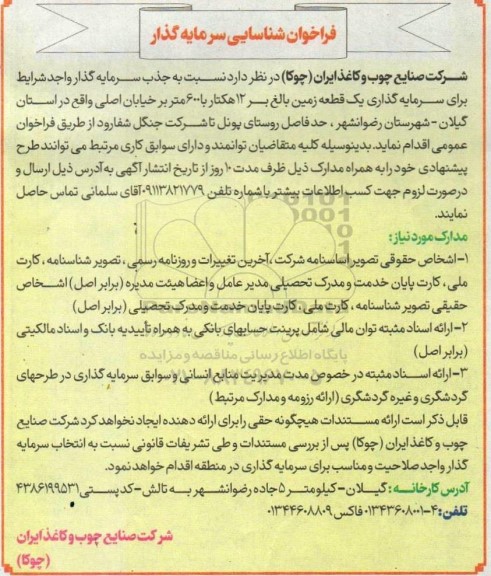 فراخوان شناسایی سرمایه گذار
شرکت صنایع چوب و کاغذ ایران (چوکا) در نظر دارد نسبت به جذب سرمایه گذار واجد شرایط
برای سرمایه گذاری یک قطعه زمین بالغ بر ۱۲ هکتار با ۶۰۰ متر بر خیابان اصلی واقع در استان
گیلان - شهرستان رضوانشهر ، حد فاصل روستای پونل تا شرکت جنگل شفارود از طریق فراخوان
عمومی اقدام نماید. بدینوسیله کلیه متقاضیان توانمند و دارای سوابق کاری مرتبط می توانند طرح
پیشنهادی خود را به همراه مدارک ذیل ظرف مدت ۱۰ روز از تاریخ انتشار آگهی به آدرس ذیل ارسال و
درصورت لزوم جهت کسب اطلاعات بیشتر با شماره تلفن ۰۹۱۱۳۸۲۱۷۷۹ آقای سلمانی تماس حاصل
نمایند.
مدارک مورد نیاز :
۱- اشخاص حقوقی تصویر اساسنامه شرکت ، آخرین تغییرات و روزنامه رسمی ، تصویر شناسنامه ، کارت
ملی ، کارت پایان خدمت و مدرک تحصیلی مدیر عامل و اعضا هیئت مدیره (برابر اصل) اشخاص
حقیقی تصویر شناسنامه ، کارت ملی ، کارت پایان خدمت و مدرک تحصیلی (برابر اصل)
۲- ارائه اسناد مثبته توان مالی شامل پرینت حسابهای بانکی به همراه تأییدیه بانک و اسناد مالکیتی
(برابر اصل)
پایگاه اطلاع رسانی مناقصه و مزایده
۳- ارائه اسناد مثبته در خصوص مدت مدیریت منابع انسانی و سوابق سرمایه گذاری در طرحهای
گردشگری و غیره گردشگری (ارائه رزومه و مدارک مرتبط)
قابل ذکر است ارائه مستندات هیچگونه حقی را برای ارائه دهنده ایجاد نخواهد کرد شرکت صنایع
چوب و کاغذ ایران (چوکا) پس از بررسی مستندات و طی تشریفات قانونی نسبت به انتخاب سرمایه
گذار واجد صلاحیت و مناسب برای سرمایه گذاری در منطقه اقدام خواهد نمود.
آدرس کارخانه : گیلان - کیلومتر ۵ جاده رضوانشهر به تالش - کد پستی ۴۳۸۶۱۹۹۵۳۱
تلفن : ۴-۰۱۳۴۳۶۰۸۰۰۱ فاکس ۰۱۳۴۴۶۰۸۸۰۹
شرکت صنایع چوب و کاغذ ایران
(چوکا)